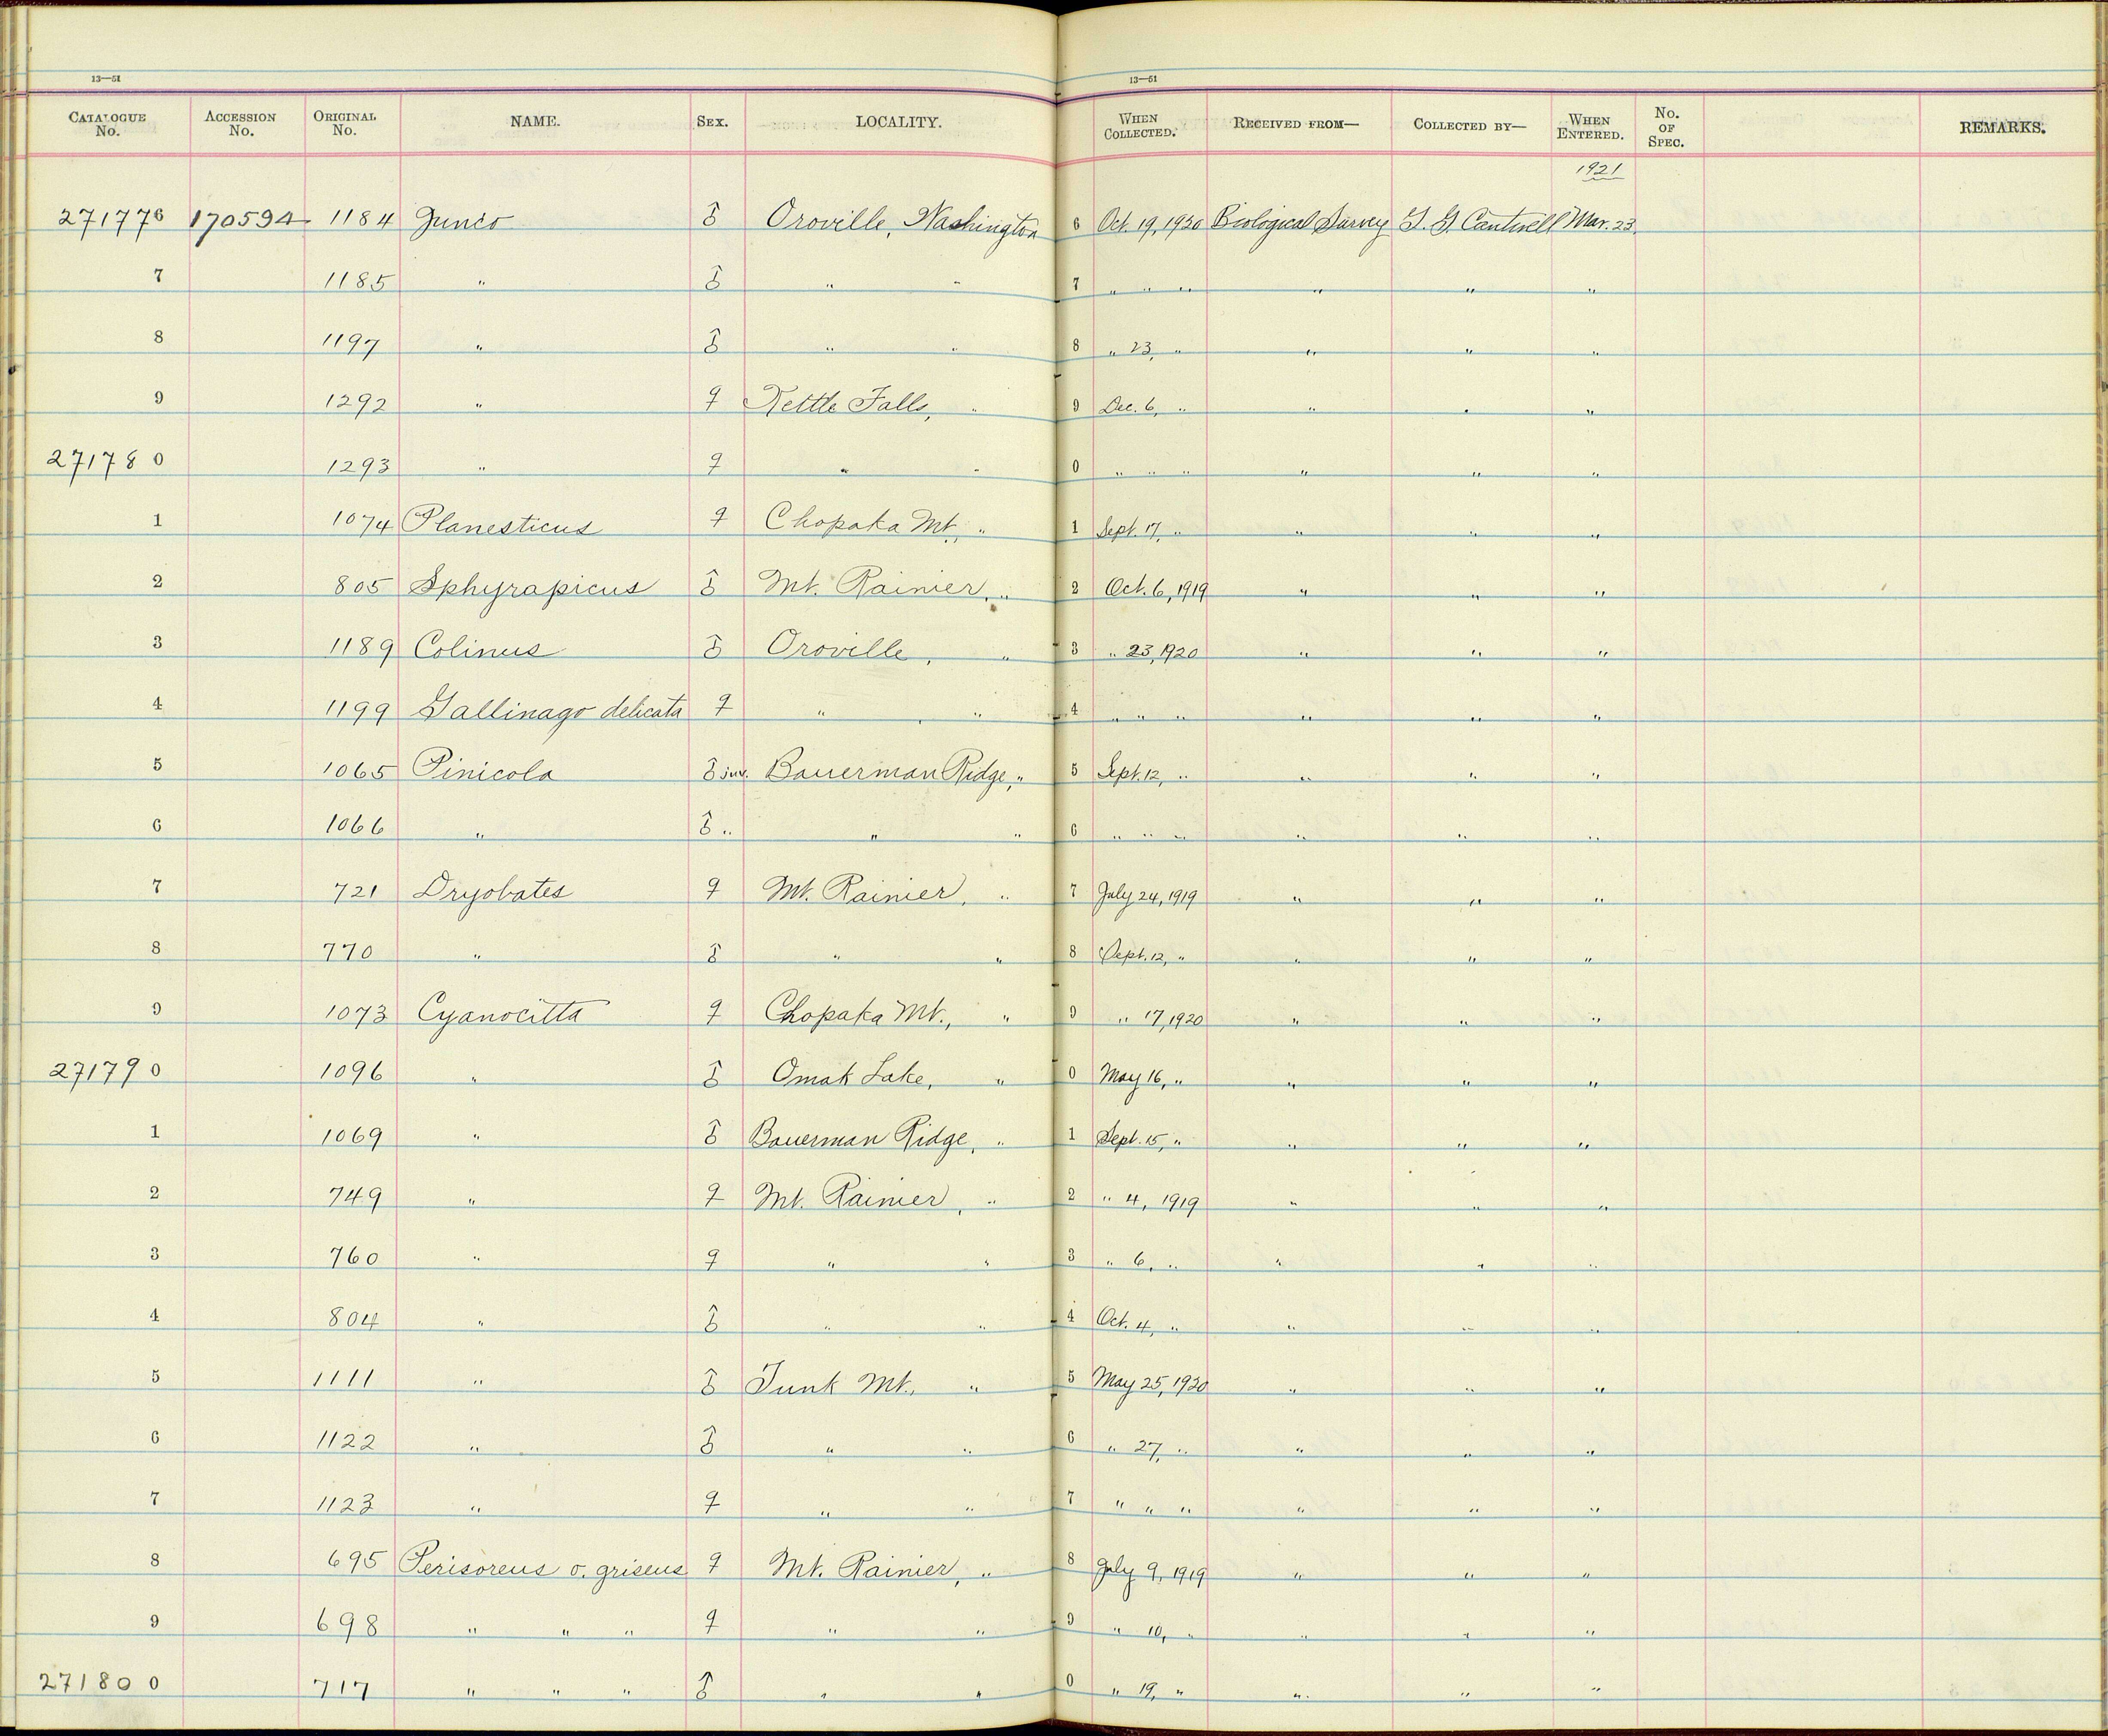 13—51 13—51
CATALOGUE No. ACCESSION No. ORIGINAL No. NAME. SEX. LOCALITY. WHEN COLLECTED. RECEIVED FROM— COLLECTED BY— WHEN ENTERED. No. OF SPEC. REMARKS.
1921
271776 170594 1184 Junco ♂ Oroville, Washington 6 Oct. 19, 1920 Biological Survey G. G. Cantwell Mar. 23.
7 1185 " ♂ " " 7 " " " " " "
8 1197 " ♂ " " 8 " 23, " " " "
9 1292 " ♀ Kettle Falls, " 9 Dec. 6, " " " "
271780 1293 " ♀ " " 0 " " " " " "
1 1074 Planesticus ♀ Chopaka Mt., " 1 Sept. 17, " " " "
2 805 Sphyrapicus ♂ Mt. Rainier, " 2 Oct. 6, 1919 " " "
3 1189 Colinus ♂ Oroville, " 3 " 23, 1920 " " "
4 1199 Gallinago delicata ♀ " " 4 " " " " " "
5 1065 Pinicola ♂ juv. Bauerman Ridge, " 5 Sept. 12, " " " "
6 1066 " ♂ " " " 6 " " " " " "
7 721 Dryobates ♀ Mt. Rainier, " 7 July 24, 1919 " " "
8 770 " ♂ " " 8 Sept. 12, " " " "
9 1073 Cyanocitta ♀ Chopaka Mt., " 9 " 17, 1920 " " "
271790 1096 " ♂ Omak Lake, " 0 May 16, " " " "
1 1069 " ♂ Bauerman Ridge, " 1 Sept. 15, " " " "
2 749 " ♀ Mt. Rainier, " 2 " 4, 1919 " " "
3 760 " ♀ " " 3 " 6, " " " "
4 804 " ♂ " " 4 Oct. 4, " " " "
5 1111 " ♂ Tunk Mt., " 5 May 25, 1920 " " "
6 1122 " ♂ " " 6 " 27, " " " "
7 1123 " ♀ " " 7 " " " " " "
8 695 Perisoreus o. griseus ♀ Mt. Rainier, " 8 July 9, 1919 " " "
9 698 " " " ♀ " " 9 " 10, " " " "
271800 717 " " " ♂ " " 0 " 19, " " " "